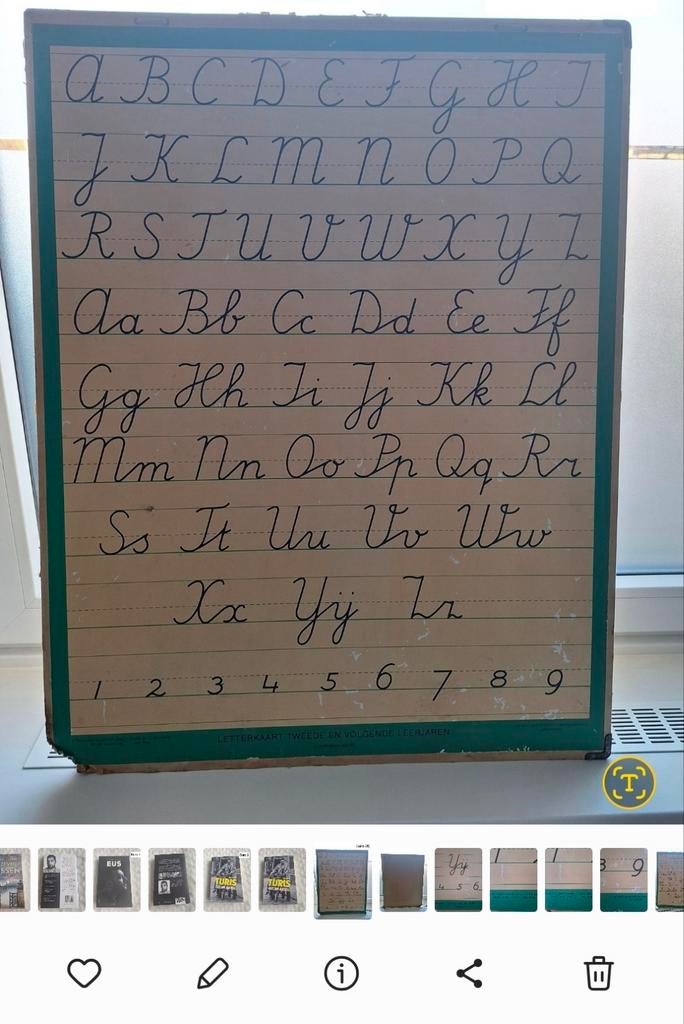 A B C D E F G H I
J K L M N O P Q
R S T U V W X Y Z
Aa Bb Cc Dd Ee Ff
Gg Hh Ii Jj Kk Ll
Mm Nn Oo Pp Qq Rr
Ss Tt Uu Vv Ww
Xx Yÿ Zz
1 2 3 4 5 6 7 8 9
LETTERKAART TWEEDE EN VOLGENDE LEERJAREN
T
EUS
TURIS
TURIS
Yÿ
4 5 6
9